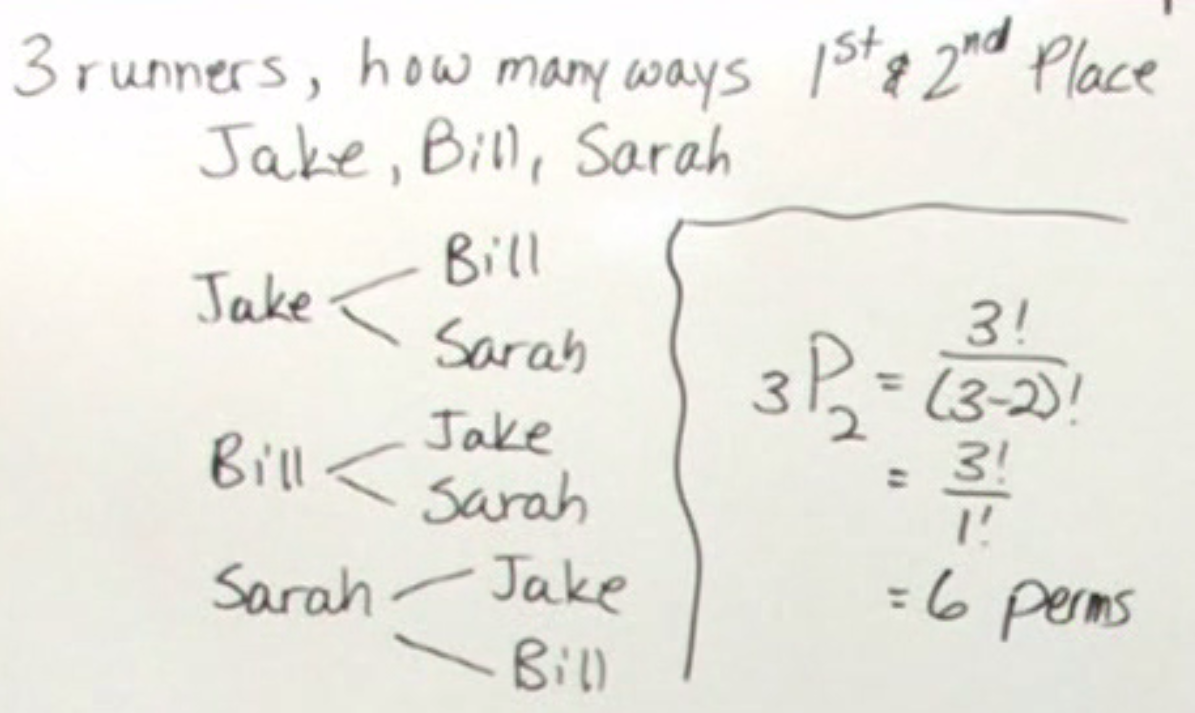 3 runners, how many ways 1st & 2nd Place
Jake, Bill, Sarah
Jake < Bill
Sarah
Bill < Jake
Sarah
Sarah Jake
Bill
3P2 = 3!/(3-2)!
= 3!/1!
= 6 perms